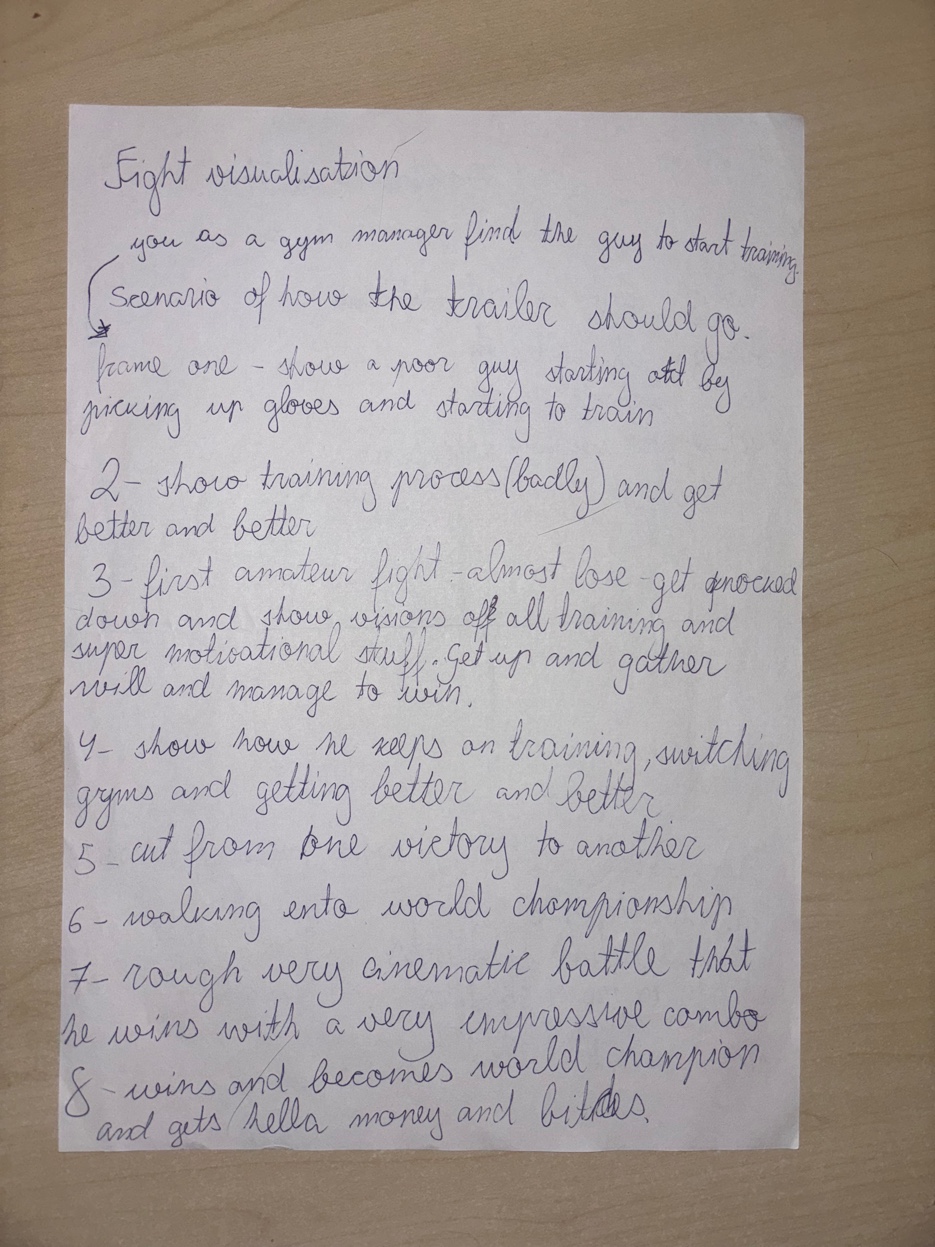 Fight visualisation
you as a gym manager find the guy to start training.
Scenario of how the trailer should go.
frame one - show a poor guy starting by
picking up gloves and starting to train
2- show training process (badly) and get
better and better
3- first amateur fight - almost lose - get qnocked
down and show visions off all training and
super motivational stuff. Get up and gather
will and manage to win.
4- show how he keeps on training, switching
gyms and getting better and better
5- cut from one victory to another
6- walking ento world championship
7- rough very cinematic battle that
he wins with a very impressive combo
8- wins and becomes world champion
and gets hella money and bitches.